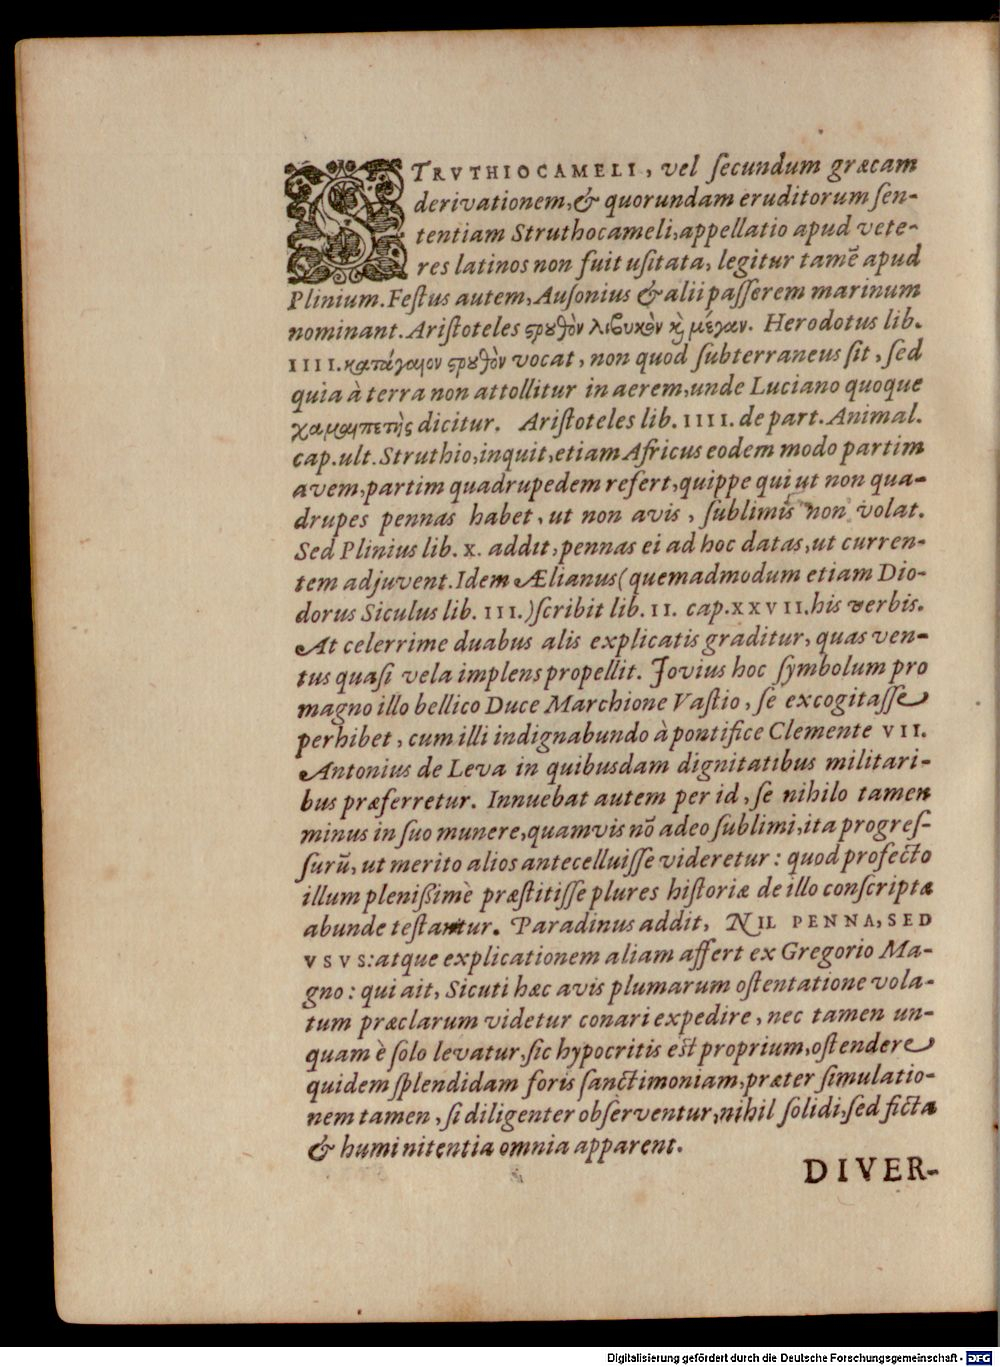 STRVTHIOCAMELI, vel ſecundum græcam
derivationem, & quorundam eruditorum ſen-
tentiam Struthocameli, appellatio apud vete-
res latinos non fuit uſitata, legitur tamē apud
Plinium. Feſtus autem, Auſonius & alii paſſerem marinum
nominant. Ariſtoteles ϛρουθὸν λιβυκὸν κὴ μέγαν. Herodotus lib.
IIII. κατάγαιον ϛρουθὸν vocat, non quod ſubterraneus ſit, ſed
quia à terra non attollitur in aerem, unde Luciano quoque
χαμαιπετὴς dicitur. Ariſtoteles lib. IIII. de part. Animal.
cap. ult. Struthio, inquit, etiam Africus eodem modo partim
avem, partim quadrupedem refert, quippe qui ut non qua-
drupes pennas habet, ut non avis, ſublimis non volat.
Sed Plinius lib. X. addit, pennas ei ad hoc datas, ut curren-
tem adjuvent. Idem Ælianus (quemadmodum etiam Dio-
dorus Siculus lib. III.) ſcribit lib. II. cap. XXVII. his verbis.
At celerrime duabus alis explicatis graditur, quas ven-
tus quaſi vela implens propellit. Jovius hoc ſymbolum pro
magno illo bellico Duce Marchione Vaſtio, ſe excogitaſſe
perhibet, cum illi indignabundo à pontifice Clemente VII.
Antonius de Leva in quibusdam dignitatibus militari-
bus præferretur. Innuebat autem per id, ſe nihilo tamen
minus in ſuo munere, quamvis nō adeo ſublimi, ita progreſ-
ſurū, ut merito alios antecelluiſſe videretur: quod profecto
illum pleniſsimè præſtitiſſe plures hiſtoriæ de illo conſcriptæ
abunde teſtantur. Paradinus addit, NIL PENNA, SED
VSVS: atque explicationem aliam affert ex Gregorio Ma-
gno: qui ait, Sicuti hæc avis plumarum oſtentatione vola-
tum præclarum videtur conari expedire, nec tamen un-
quam è ſolo levatur, ſic hypocritis eſt proprium, oſtendere
quidem ſplendidam foris ſanctimoniam, præter ſimulatio-
nem tamen, ſi diligenter obſerventur, nihil ſolidi, ſed ficta
& humi nitentia omnia apparent.
DIVER-
Digitalisierung gefördert durch die Deutsche Forschungsgemeinschaft - DFG